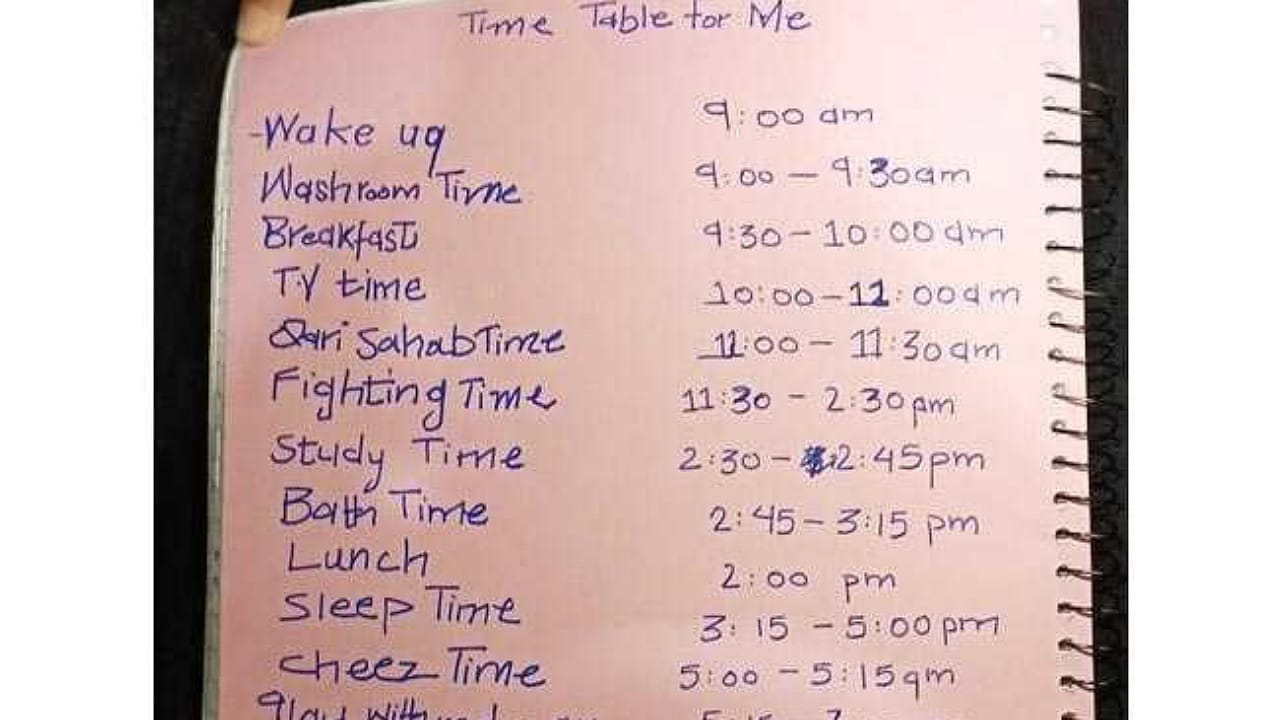 Time Table for Me
-Wake uq 9:00 am
Washroom Time 9:00 - 9:30am
Breakfast 9:30 - 10:00 am
T.V time 10:00 - 11:00am
Qari SahabTime 11:00 - 11:30am
Fighting Time 11:30 - 2:30pm
Study Time 2:30 - 2:45pm
Bath Time 2:45 - 3:15 pm
Lunch 2:00 pm
Sleep Time 3:15 - 5:00pm
Cheez Time 5:00 - 5:15qm